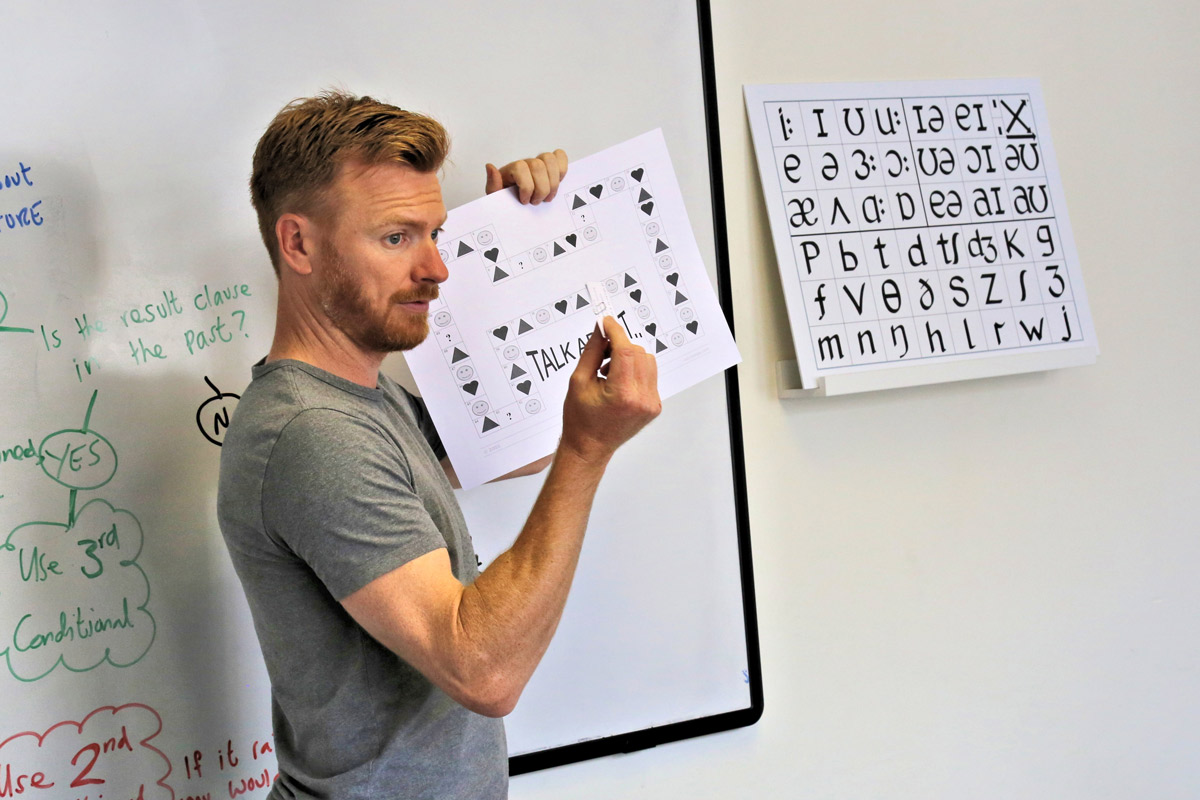 TURE
Is the result clause
in the past?
N
YES
Use 3rd
Conditional
Use 2nd
If it
TALK
?
?
?
?
i: ɪ ʊ u: ɪə eɪ
e ə ɜ: ɔ: ʊə ɔɪ əʊ
æ ʌ ɑ: ɒ eə aɪ aʊ
p b t d tʃ dʒ k g
f v θ ð s z ʃ ʒ
m n ŋ h l r w j